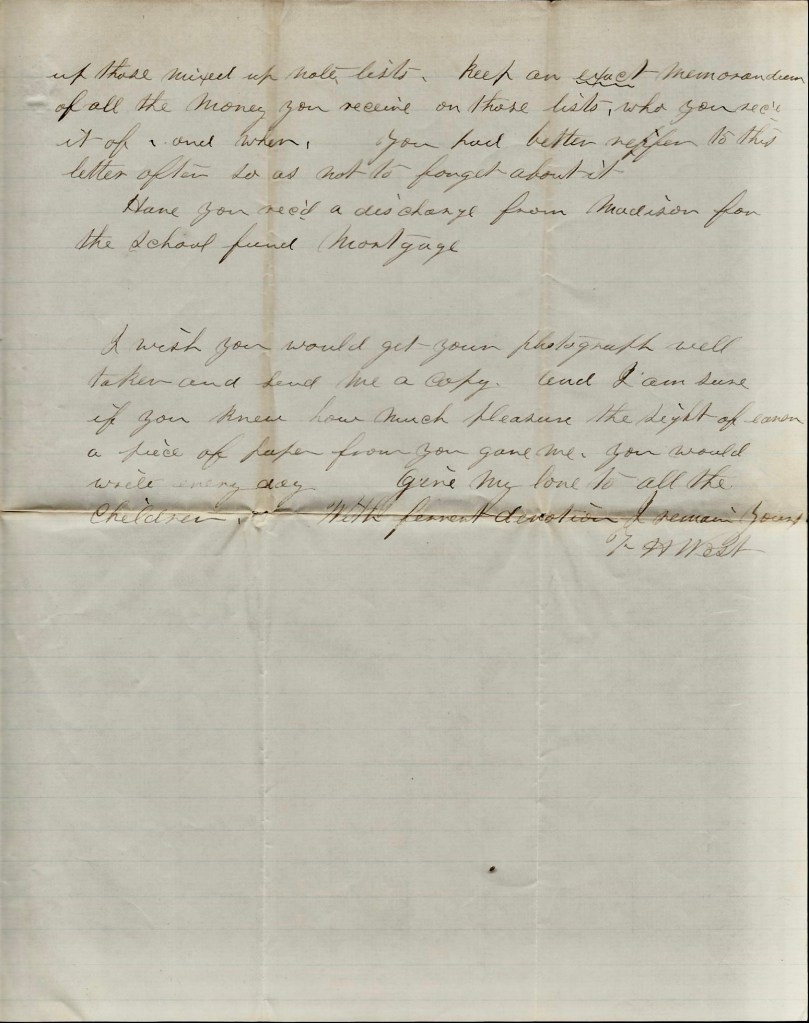 up those mixed up note lists. Keep an exact memorandum
of all the money you receive on those lists, who you rec'd
it of, and when. You had better reffer to this
letter often so as not to forget about it
Have you rec'd a discharge from Madison for
the School fund Mortgage
I wish you would get your photograph well
taken and send me a copy. and I am sure
if you knew how much pleasure the sight of even
a piece of paper from you gave me. you would
write every day Give my love to all the
Children. With fervent devotion I remain Yours
F H West